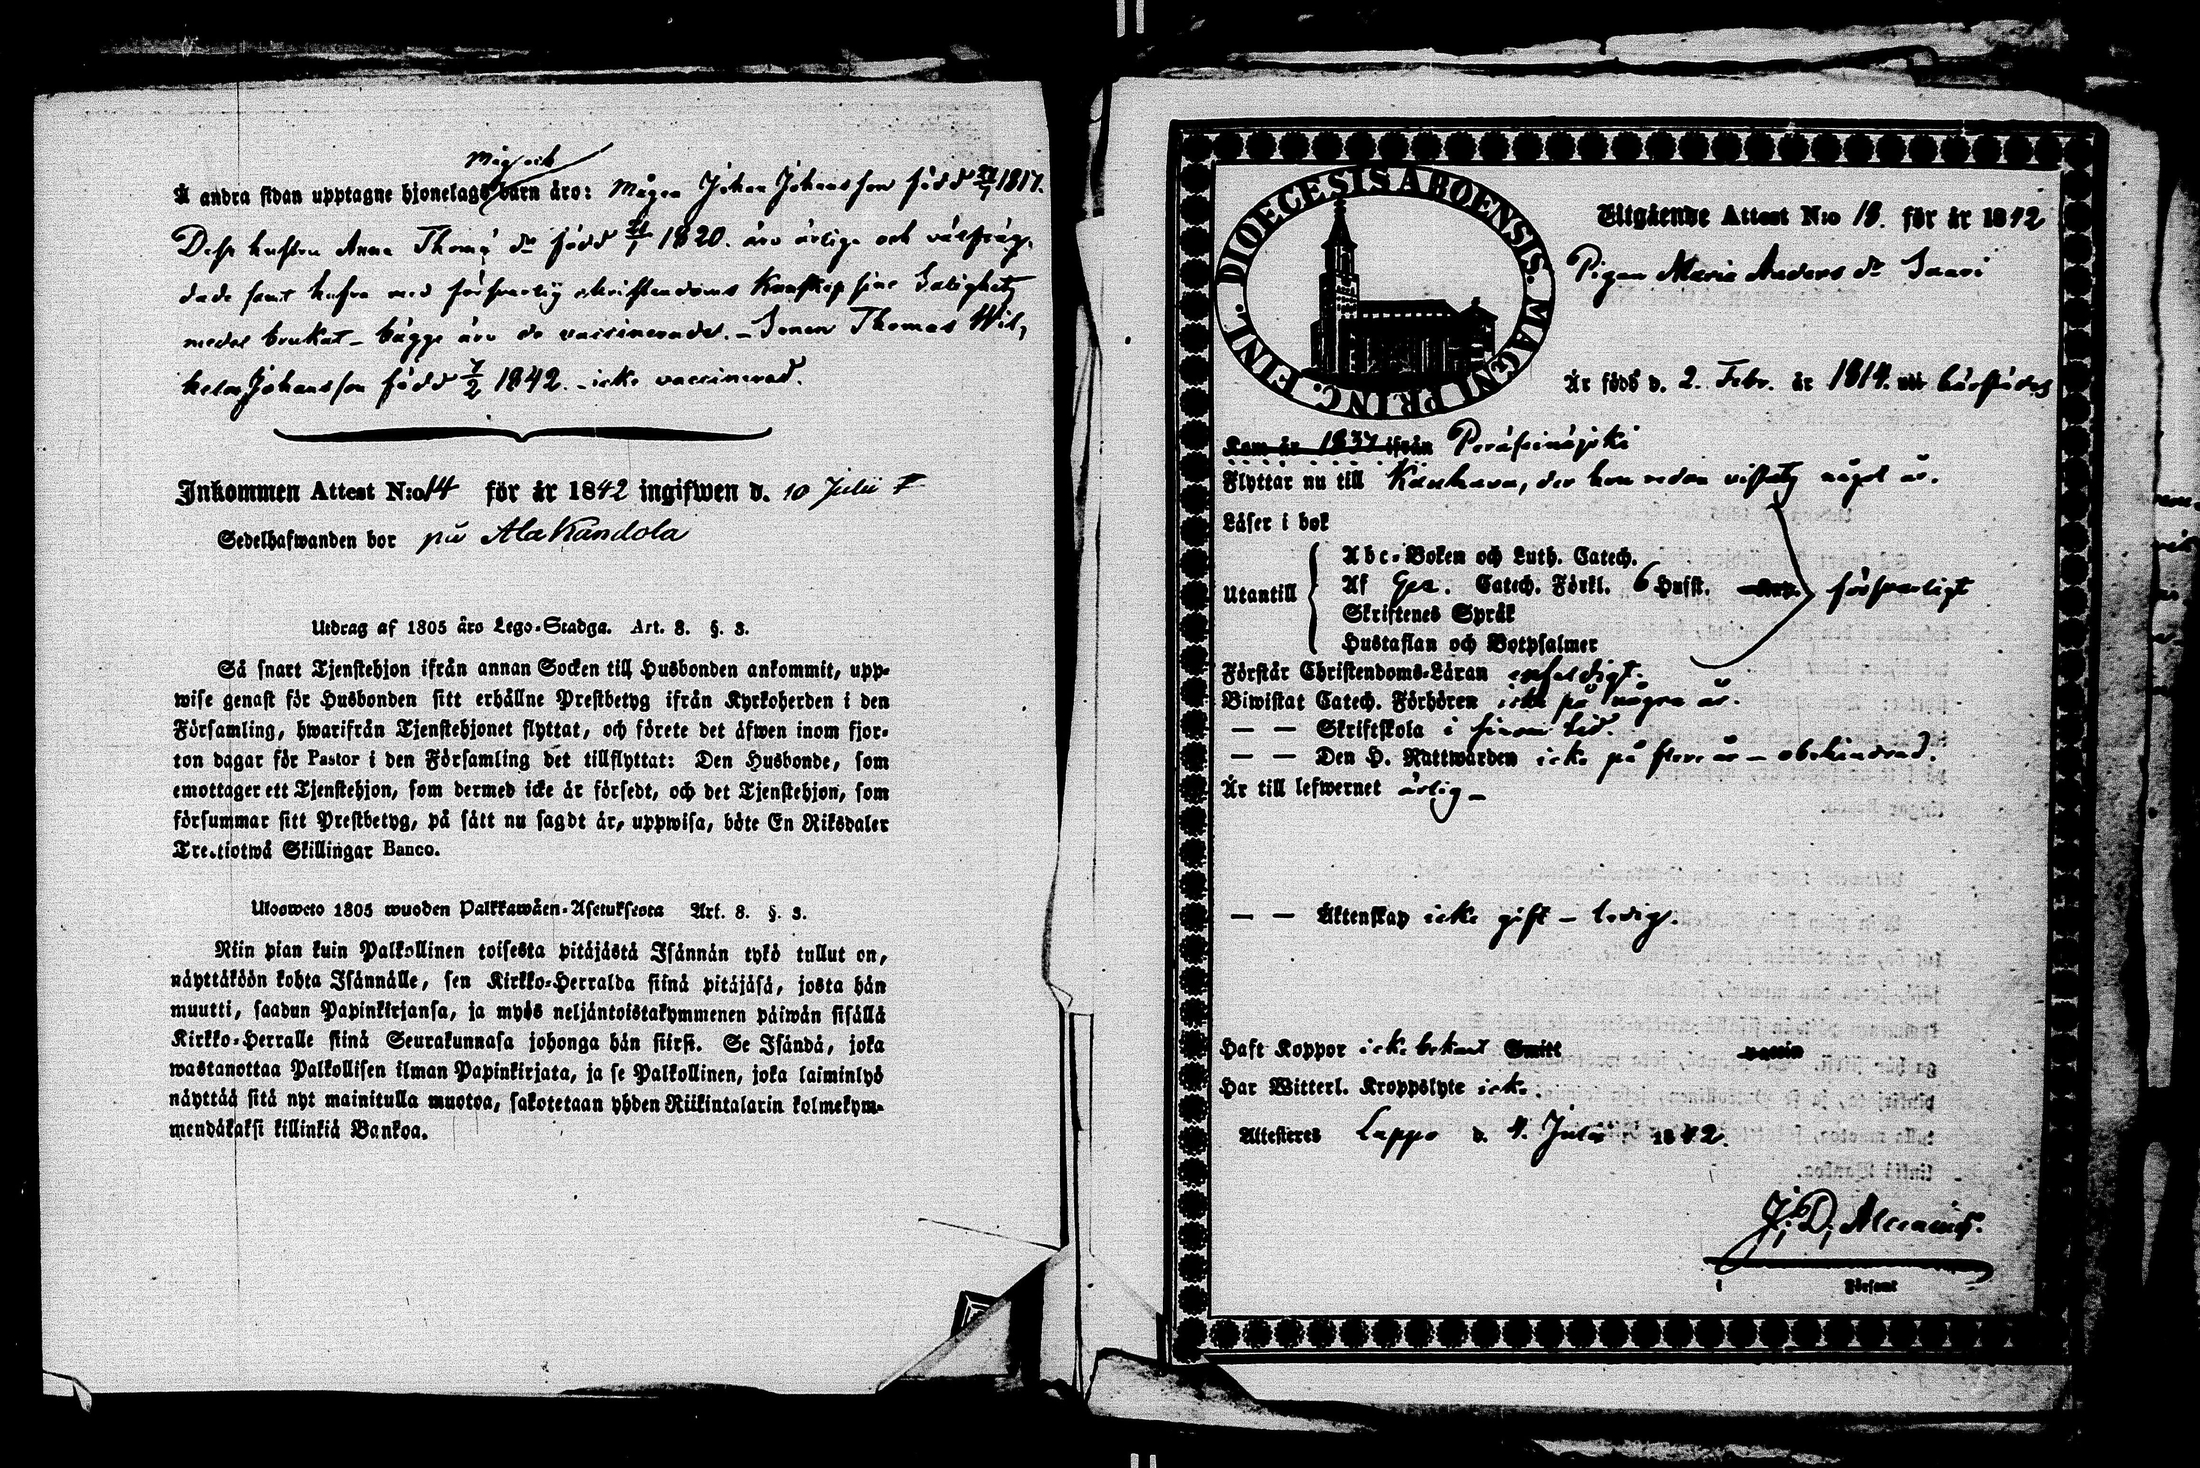 Måg och
Å andra sidan upptagne hjonelags barn äro: Mågen Johan Johansson född 24/7 1817.
Dess hustru Anna Thomæ dr född 21/1 1820. äro ärlige och välfräg-
dade samt hafva med försvarlig christendoms kunskap sine Salighets
medel brukat – bägge äro de vaccinerade. – Sonen Thomas Wil-
helm Johansson född 7/2 1842. – icke vaccinerad.
Inkommen Attest N:o 14 för år 1842 ingifwen d. 10 Julii
Sedelhafwanden bor på Ala Kandola
Utdrag af 1805 års Lego-Stadga. Art. 8. §. 3.
Så snart Tjenstehjon ifrån annan Socken till Husbonden ankommit, upp-
wise genast för Husbonden sitt erhållne Prestbetyg ifrån Kyrkoherden i den
Församling, hwarifrån Tjenstehjonet flyttat, och förete det äfwen inom fjor-
ton dagar för Pastor i den Församling det tillflyttat: Den Husbonde, som
emottager ett Tjenstehjon, som dermed icke är försedt, och det Tjenstehjon, som
försummar sitt Prestbetyg, på sätt nu sagdt är, uppwisa, böte En Riksdaler
Trettiotwå Skillingar Banco.
Ulosweto 1805 wuoden Palkkawäen-Asetuksesta Art. 8. §. 3.
Niin pian kuin Palkollinen toisesta pitäjästä Isännän tykö tullut on,
näyttäköön kohta Isännälle, sen Kirkko-Herralda siinä pitäjäsä, josta hän
muutti, saadun Papinkirjansa, ja myös neljäntoistakymmenen päiwän sisällä
Kirkko-Herralle siinä Seurakunnasa johonga hän siirsi. Se Isändä, joka
wastanottaa Palkollisen ilman Papinkirjata, ja se Palkollinen, joka laiminlyö
näyttää sitä nyt mainitulla muotoa, sakotetaan yhden Riikintalarin kolmekym-
mendäkaksi killinkiä Bankoa.
DIOECESIS ABOENSIS. MAGNI PRINC. FINL.
Utgående Attest N:o 18. för år 1842
Pigan Maria Anders dr Saari
Är född d. 2. Febr. år 1814. härstädes
Kom år 1837 ifrån Peräseinäjoki
Flyttar nu till Kauhava, der hon redan vistats något år.
Läser i bok
Abc-Boken och Luth. Catech.
Utantill Af Gez. Catech. Förkl. 6 Hufst. försvarligt
Skriftenes Språk
Hustaflan och Botpsalmer
Förstår Christendoms-Läran enfaldigt.
Biwistat Catech. Förhören icke på några år.
— — Skriftskola i sinom tid.
— — Den H. Nattwarden icke på flere år – obehindrad.
Är till lefwernet ärlig –
— — Äktenskap icke gift – ledig.
Haft Koppor icke bekant Smitt vaccin
Har Witterl. Kroppslyte icke.
Attesteres Lappo d. 4. Julii 1842.
J. D. Alcenius.